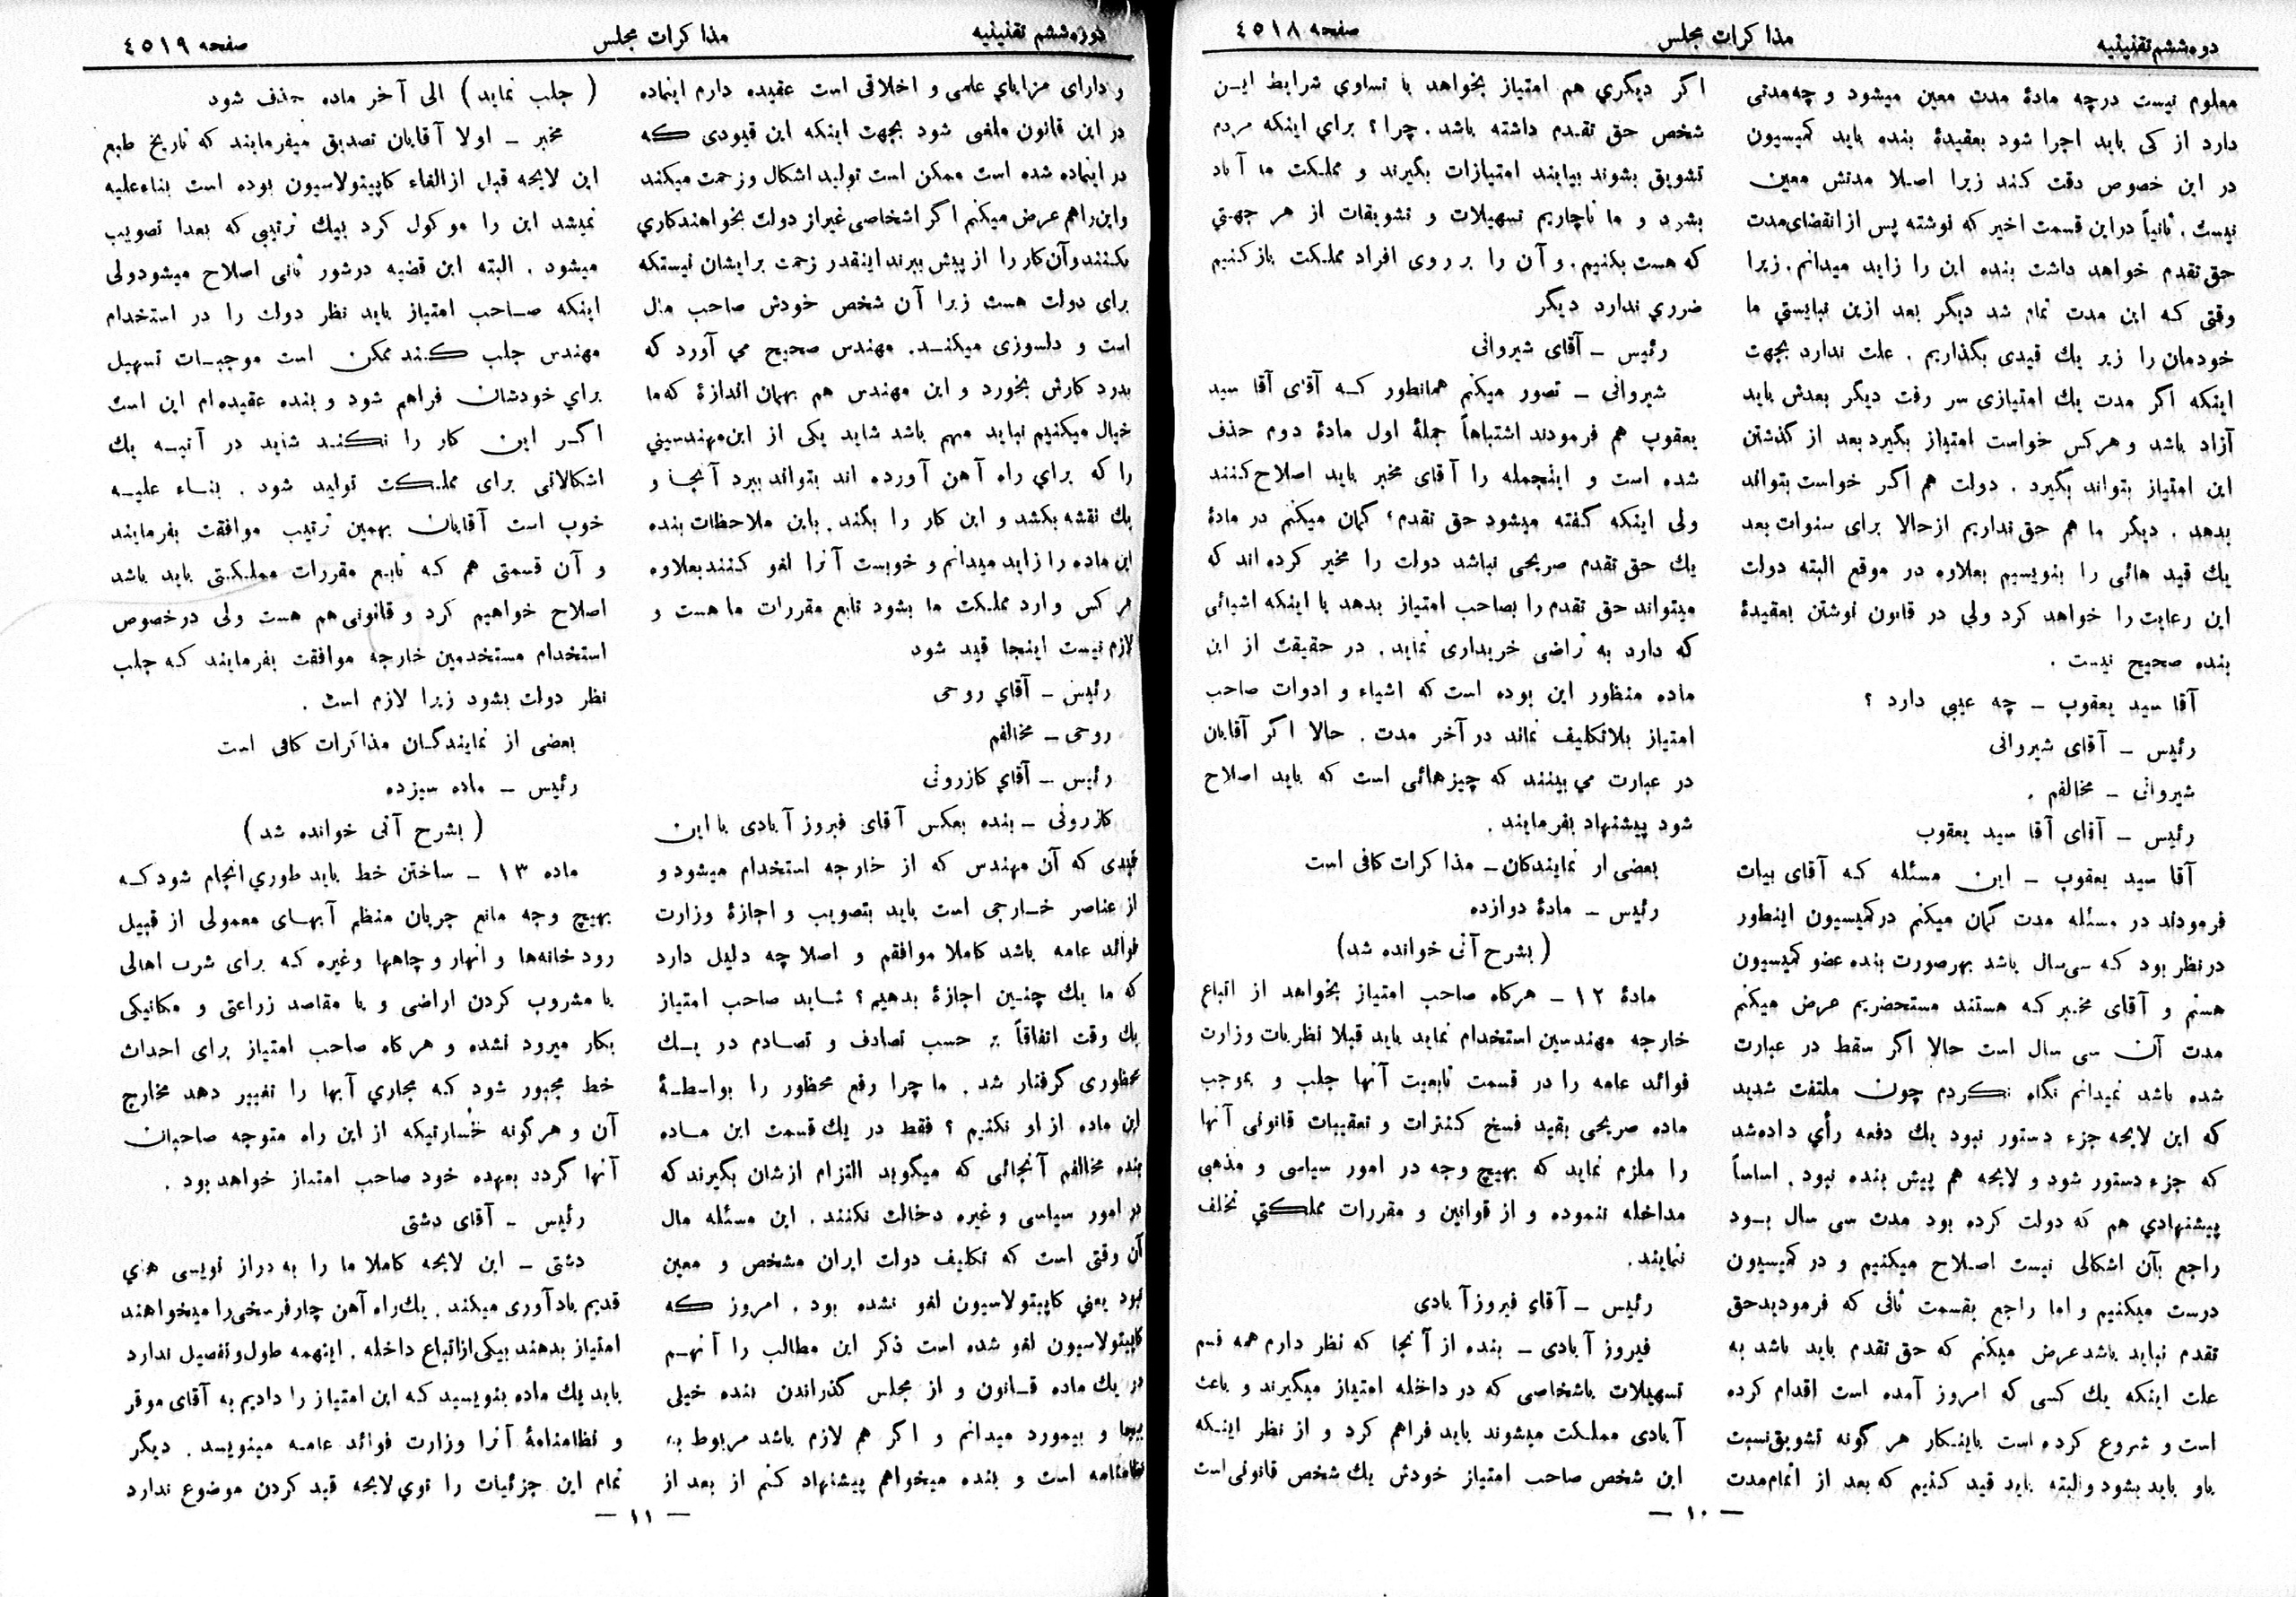 دوره ششم تقنینیه
مذاکرات مجلس
صفحه ٤٥١٨
معلوم نیست درچه مادهٔ مدت معین میشود و چه مدتی
دارد از کی باید اجرا شود بعقیدهٔ بنده باید کمیسیون
در این خصوص دقت کند زیرا اصلا مدتش معین
نیست . ثانیاً دراین قسمت اخیر که نوشته پس از انقضای مدت
حق تقدم خواهد داشت بنده این را زاید میدانم . زیرا
وقتی که این مدت تمام شد دیگر بعد ازین نبایستي ما
خودمان را زیر یك قیدی بگذاریم . علت ندارد بجهت
اینکه اگر مدت یك امتیازی سر رفت دیگر بعدش باید
آزاد باشد و هرکس خواست امتیاز بگیرد بعد از گذشتن
این امتیاز بتواند بگیرد . دولت هم اگر خواست بتواند
بدهد . دیگر ما هم حق نداریم ازحالا برای سنوات بعد
یك قید هائی را بنویسیم بعلاوه در موقع البته دولت
این رعایت را خواهد کرد ولي در قانون نوشتن بعقیدهٔ
بنده صحیح نیست .
آقا سید یعقوب ــ چه عیبي دارد ؟
رئیس ــ آقای شیروانی
شیروانی ــ مخالفم .
رئیس ــ آقای آقا سید یعقوب
آقا سید یعقوب ــ این مسئله که آقای بیات
فرمودند در مسئله مدت گمان میکنم درکمیسیون اینطور
درنظر بود که سی سال باشد بهرصورت بنده عضو کمیسیون
هستم و آقای مخبر که هستند مستحضریم عرض میکنم
مدت آن سی سال است حالا اگر سقط در عبارت
شده باشد نمیدانم نگاه نکردم چون ملتفت شدید
که این لایحه جزء دستور نبود یك دفعه رأي داده شد
که جزء دستور شود و لایحه هم پیش بنده نبود . اساساً
پیشنهادي هم که دولت کرده بود مدت سی سال بود
راجع بآن اشکالی نیست اصلاح میکنیم و در کمیسیون
درست میکنیم و اما راجع بقسمت ثانی که فرمودید حق
تقدم نباید باشد عرض میکنم که حق تقدم باید باشد به
علت اینکه یك کسی که امروز آمده است اقدام کرده
است و شروع کرده است باینکار هر گونه تشویق نسبت
باو باید بشود والبته باید قید کنیم که بعد از اتمام مدت
اگر دیگري هم امتیاز بخواهد با تساوي شرایط این
شخص حق تقدم داشته باشد . چرا ؟ براي اینکه مردم
تشویق بشوند بیایند امتیازات بگیرند و مملکت ما آباد
بشود و ما ناچاریم تسهیلات و تشویقات از هر جهتي
که هست بکنیم . و آن را بر روی افراد مملکت باز کنیم
ضرري ندارد دیگر
رئیس ــ آقای شیروانی
شیروانی ــ تصور میکنم همانطور که آقای آقا سید
یعقوب هم فرمودند اشتباهاً جملهٔ اول مادهٔ دوم حذف
شده است و اینجمله را آقای مخبر باید اصلاح کنند
ولی اینکه گفته میشود حق تقدم ؛ گمان میکنم در مادهٔ
یك حق تقدم صریحی نباشد دولت را مخیر کرده اند که
میتواند حق تقدم را بصاحب امتیاز بدهد با اینکه اشیائی
که دارد به تراضی خریداری نماید . در حقیقت از این
ماده منظور این بوده است که اشیاء و ادوات صاحب
امتیاز بلاتکلیف نماند در آخر مدت . حالا اگر آقایان
در عبارت مي بینند که چیزهائی است که باید اصلاح
شود پیشنهاد بفرمایند .
بعضی از نمایندکان ــ مذاکرات کافی است
رئیس ــ مادهٔ دوازده
( بشرح آتی خوانده شد )
مادهٔ ١٢ ــ هرکاه صاحب امتیاز بخواهد از اتباع
خارجه مهندسین استخدام نماید باید قبلا نظریات وزارت
فوائد عامه را در قسمت تابعیت آنها جلب و بموجب
ماده صریحی بقید فسخ کنترات و تعقیبات قانونی آنها
را ملزم نماید که بهیچ وجه در امور سیاسی و مذهبی
مداخله ننموده و از قوانین و مقررات مملکتي تخلف
ننمایند .
رئیس ــ آقای فیروزآبادی
فیروز آبادی ــ بنده از آنجا که نظر دارم همه قسم
تسهیلات باشخاصی که در داخله امتیاز میگیرند و باعث
آبادی مملکت میشوند باید فراهم کرد و از نظر اینکه
این شخص صاحب امتیاز خودش یك شخص قانونی است
— ١٠ —
دوره ششم تقنینیه
مذاکرات مجلس
صفحه ٤٥١٩
و دارای مزایاي علمی و اخلاقی است عقیده دارم اینماده
در این قانون ملغی شود بجهت اینکه این قیودی که
در اینماده شده است ممکن است تولید اشکال و زحمت میکند
واین راهم عرض میکنم اگر اشخاصی غیر از دولت بخواهند کاري
بکنند و آن کار را از پیش ببرند اینقدر زحمت برایشان نیستکه
برای دولت هست زیرا آن شخص خودش صاحب مال
است و دلسوزی میکند . مهندس صحیح مي آورد که
بدرد کارش بخورد و این مهندس هم بهمان اندازهٔ که ما
خیال میکنیم نباید مهم باشد شاید یکی از این مهندسیني
را که براي راه آهن آورده اند بتواند ببرد آنجا و
یك نقشه بکشد و این کار را بکند . باین ملاحظات بنده
این ماده را زاید میدانم و خوبست آنرا لغو کنند بعلاوه
هر کس وارد مملکت ما بشود تابع مقررات ما هست و
لازم نیست اینجا قید شود
رئیس ــ آقاي روحی
روحی ــ مخالفم
رئیس ــ آقاي کازرونی
کازرونی ــ بنده بعکس آقای فیروز آبادی با این
قیدی که آن مهندس که از خارجه استخدام میشود و
از عناصر خارجی است باید بتصویب و اجازهٔ وزارت
فوائد عامه باشد کاملا موافقم و اصلا چه دلیل دارد
که ما یك چنین اجازهٔ بدهیم ؟ شاید صاحب امتیاز
یك وقت اتفاقاً بر حسب تصادف و تصادم در یك
محظوری گرفتار شد . ما چرا رفع محظور را بواسطهٔ
این ماده از او نکنیم ؟ فقط در یك قسمت این ماده
بنده مخالفم آنجائی که میگوید التزام ازشان بگیرند که
در امور سیاسی و غیره دخالت نکنند . این مسئله مال
آن وقتی است که تکلیف دولت ایران مشخص و معین
نبود یعني کاپیتولاسیون لغو نشده بود . امروز که
کاپیتولاسیون لغو شده است ذکر این مطالب را آنهم
در یك ماده قانون و از مجلس گذراندن بنده خیلی
بیجا و بیمورد میدانم و اگر هم لازم باشد مربوط به
نظامنامه است و بنده میخواهم پیشنهاد کنم از بعد از
( جلب نماید ) الی آخر ماده حذف شود
مخبر ــ اولا آقایان تصدیق میفرمایند که تاریخ طبع
این لایحه قبل از الغاء کاپیتولاسیون بوده است بناء علیه
نمیشد این را موکول کرد بیك ترتیبی که بعدا تصویب
میشود . البته این قضیه درشور ثانی اصلاح میشود ولی
اینکه صاحب امتیاز باید نظر دولت را در استخدام
مهندس جلب کند ممکن است موجبات تسهیل
براي خودشان فراهم شود و بنده عقیده ام این است
اگر این کار را نکند شاید در آتیه یك
اشکالاتی برای مملکت تولید شود . بناء علیه
خوب است آقایان بهمین ترتیب موافقت بفرمایند
و آن قسمتی هم که تابع مقررات مملکتی باید باشد
اصلاح خواهیم کرد و قانونی هم هست ولی درخصوص
استخدام مستخدمین خارجه موافقت بفرمایند که جلب
نظر دولت بشود زیرا لازم است .
بعضی از نمایندگان مذاکرات کافی است
رئیس ــ ماده سیزده
( بشرح آتی خوانده شد )
ماده ١٣ ــ ساختن خط باید طوري انجام شود که
بهیچ وجه مانع جریان منظم آبهای معمولی از قبیل
رود خانه‌ها و انهار و چاهها وغیره که برای شرب اهالی
یا مشروب کردن اراضی و یا مقاصد زراعتی و مکانیکی
بکار میرود نشده و هرکاه صاحب امتیاز برای احداث
خط مجبور شود که مجاري آبها را تغییر دهد مخارج
آن و هرگونه خسارتیکه از این راه متوجه صاحبان
آنها گردد بعهده خود صاحب امتیاز خواهد بود .
رئیس ــ آقای دشتی
دشتی ــ این لایحه کاملا ما را به دراز نویسی هاي
قدیم یادآوری میکند . یك راه آهن چار فرسخی را میخواهند
امتیاز بدهند بیکی از اتباع داخله . اینهمه طول و تفصیل ندارد
باید یك ماده بنویسید که این امتیاز را دادیم به آقای موقر
و نظامنامهٔ آنرا وزارت فوائد عامه مینویسد . دیگر
تمام این جزئیات را توي لایحه قید کردن موضوع ندارد
— ١١ —